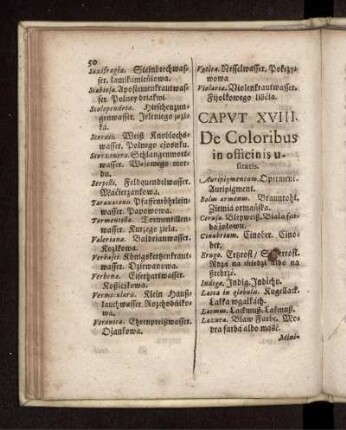 50
Saxifragiæ. Steinbrechwas-
ser. Łomikamieńiowa.
Scabiosæ. Apostemenkrautwas-
ser. Polney driakwi.
Scolopendria. Hirschenzun-
genwasser. Jeleniego jęzi-
ka.
Weiß Knoblochs-
wasser. Polnego czosnku.
Schlangenwort-
wasser. Wężowego mor-
du.
Serpilli. Feldquendelwasser.
Máćierzankowa.
Taraxaconu. Pfaffenröhrlein-
wasser. Papowowa.
Tormentillæ. Tormentillen-
wasser. Kurzego ziela.
Valerianæ. Baldrianwasser.
Kozłkowa.
Verbasci. Königskertzenkraut-
wasser. Dziewanowa.
Verbenæ. Eisenhartwasser.
Koszyczkowa.
Vermicularis. Klein Hauß-
lauchwasser. Rozchodniko-
wa.
Veronicæ. Ehrenpreißwasser.
Ożankowa.
Nesselwasser. Pokrzy-
wowa
Violariæ. Violenkrautwasser.
Fiyołkowego liśćia.
CAPVT XVIII.
De Coloribus
in officinis u-
sitatis.
Auripigmentum. Operment.
Auripigment.
Bolus armenus. Braunroht.
Ziemia ormáńska.
Cerusa. Bleyweiß. Biała far-
ba
Cinabrium. Cinober. Cino-
ber.
Ertzrost/
Rdza na miedzi albo na
śrebrze.
Indigo. Indig. Indicht.
Lacca in globulis. Kugellack.
Lakka w gałkách.
Lacmus. Lackmuß. Lakmuß.
Lazura. Blaw Farbe. Mo-
dra farba albo máść.
Mini-